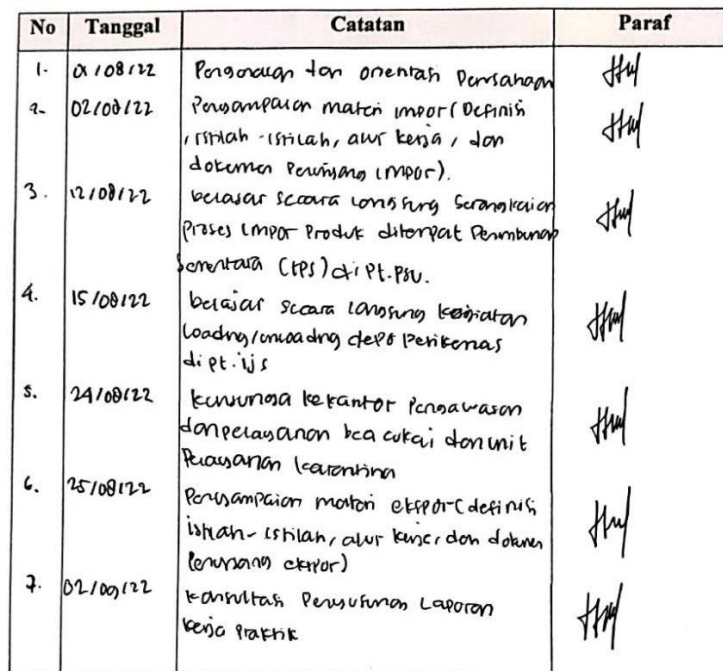 No Tanggal Catatan Paraf
1. 01/08/22 Pengenalan dan orientasi Perusahaan
2. 02/08/22 Penyampaian materi impor (Definisi
, istilah-istilah, alur kerja, dan
dokumen Penunjang impor).
3. 12/08/22 belajar secara langsung serangkaian
Proses impor Produk ditempat Penimbunan
Sementara (TPS) di Pt. PSU.
4. 15/08/22 belajar secara langsung kegiatan
Loading/unloading depo Petikemas
di pt. ijs
5. 24/08/22 kunjungan ke kantor Pengawasan
dan pelayanan bea cukai dan unit
Pelayanan karantina
6. 25/08/22 Penyampaian materi ekspor (definisi
istilah-istilah, alur kerja, dan dokumen
Penunjang ekspor)
7. 02/09/22 konsultasi Penyusunan Laporan
kerja Praktik